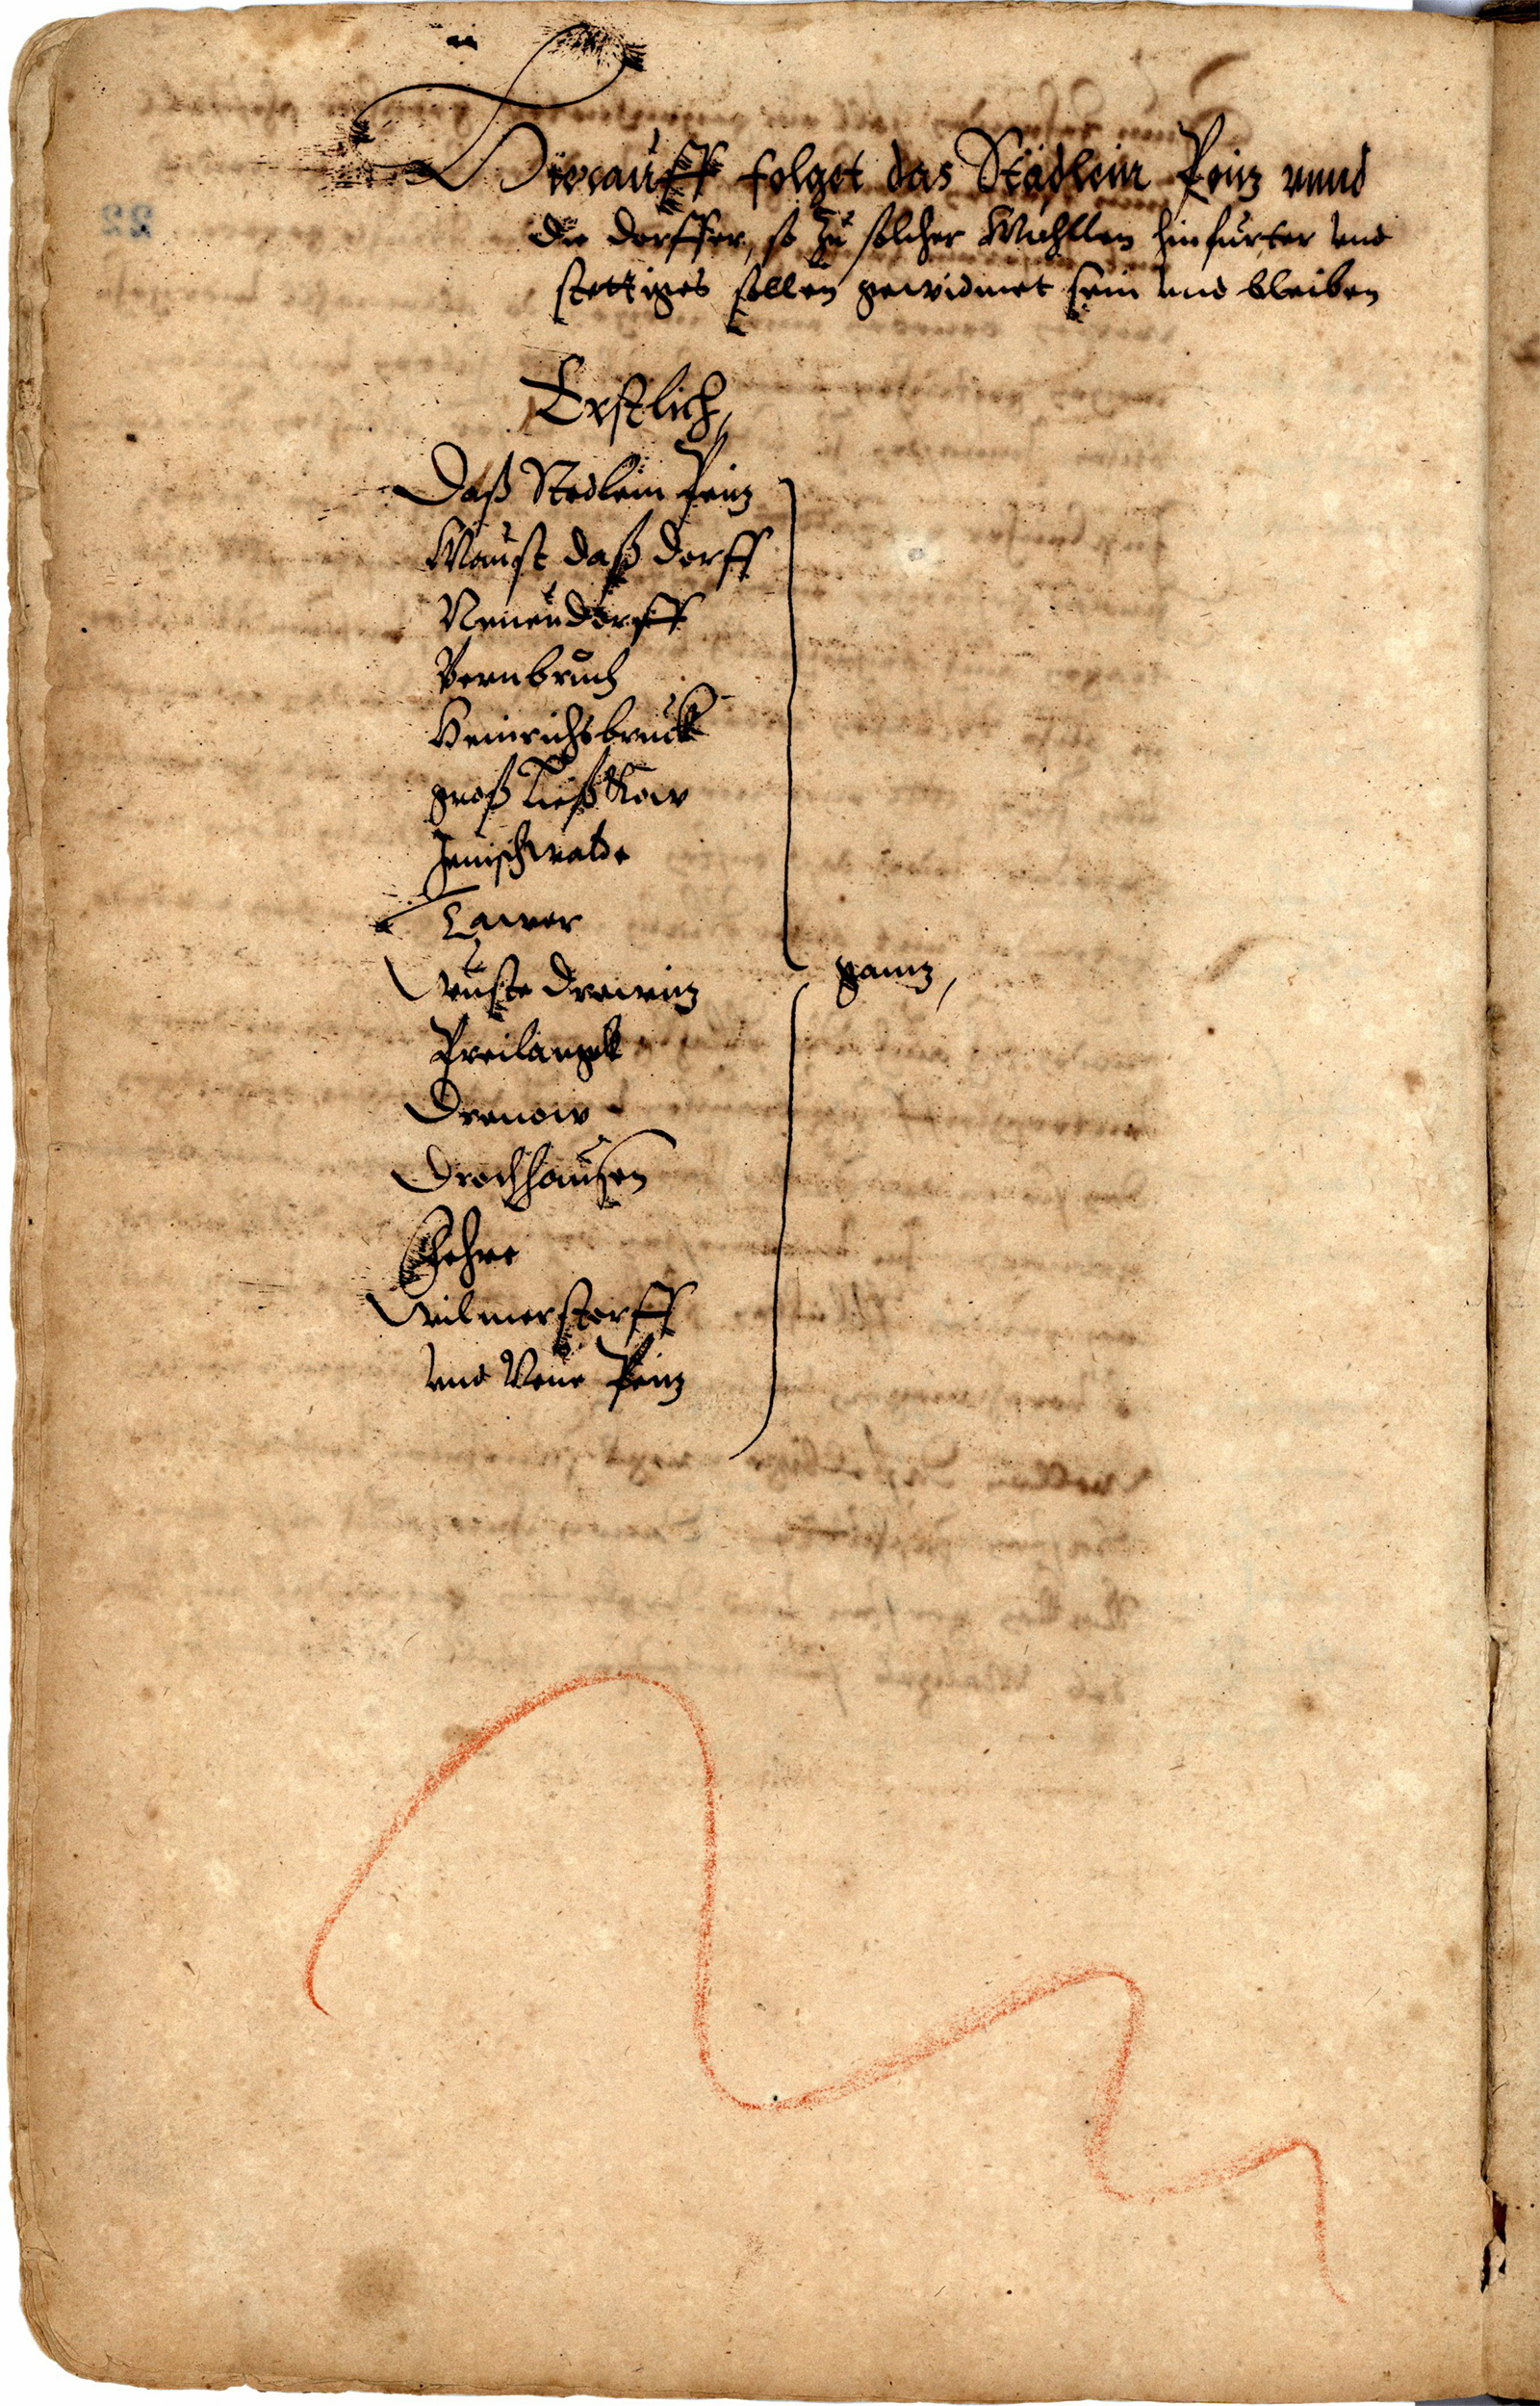 Hierauff folget das Städlein Peitz vnnd
die dorffer, so zu solcher Muhllen hinfurter vnd
stettiges sollen gewidmet sein vnd bleiben
Erstlich,
Daß Stedlein Peitz
Maust daß dorff
Neuendorff
Bernbruch
Heinrichsbruck
groß Ließkow
Jenischwalde
Tawer
Wuste Drewitz
Preilangk
Drenow
Drachhausen
Fehre
Wilmerstorff
vnd Neue Peitz
gantz,